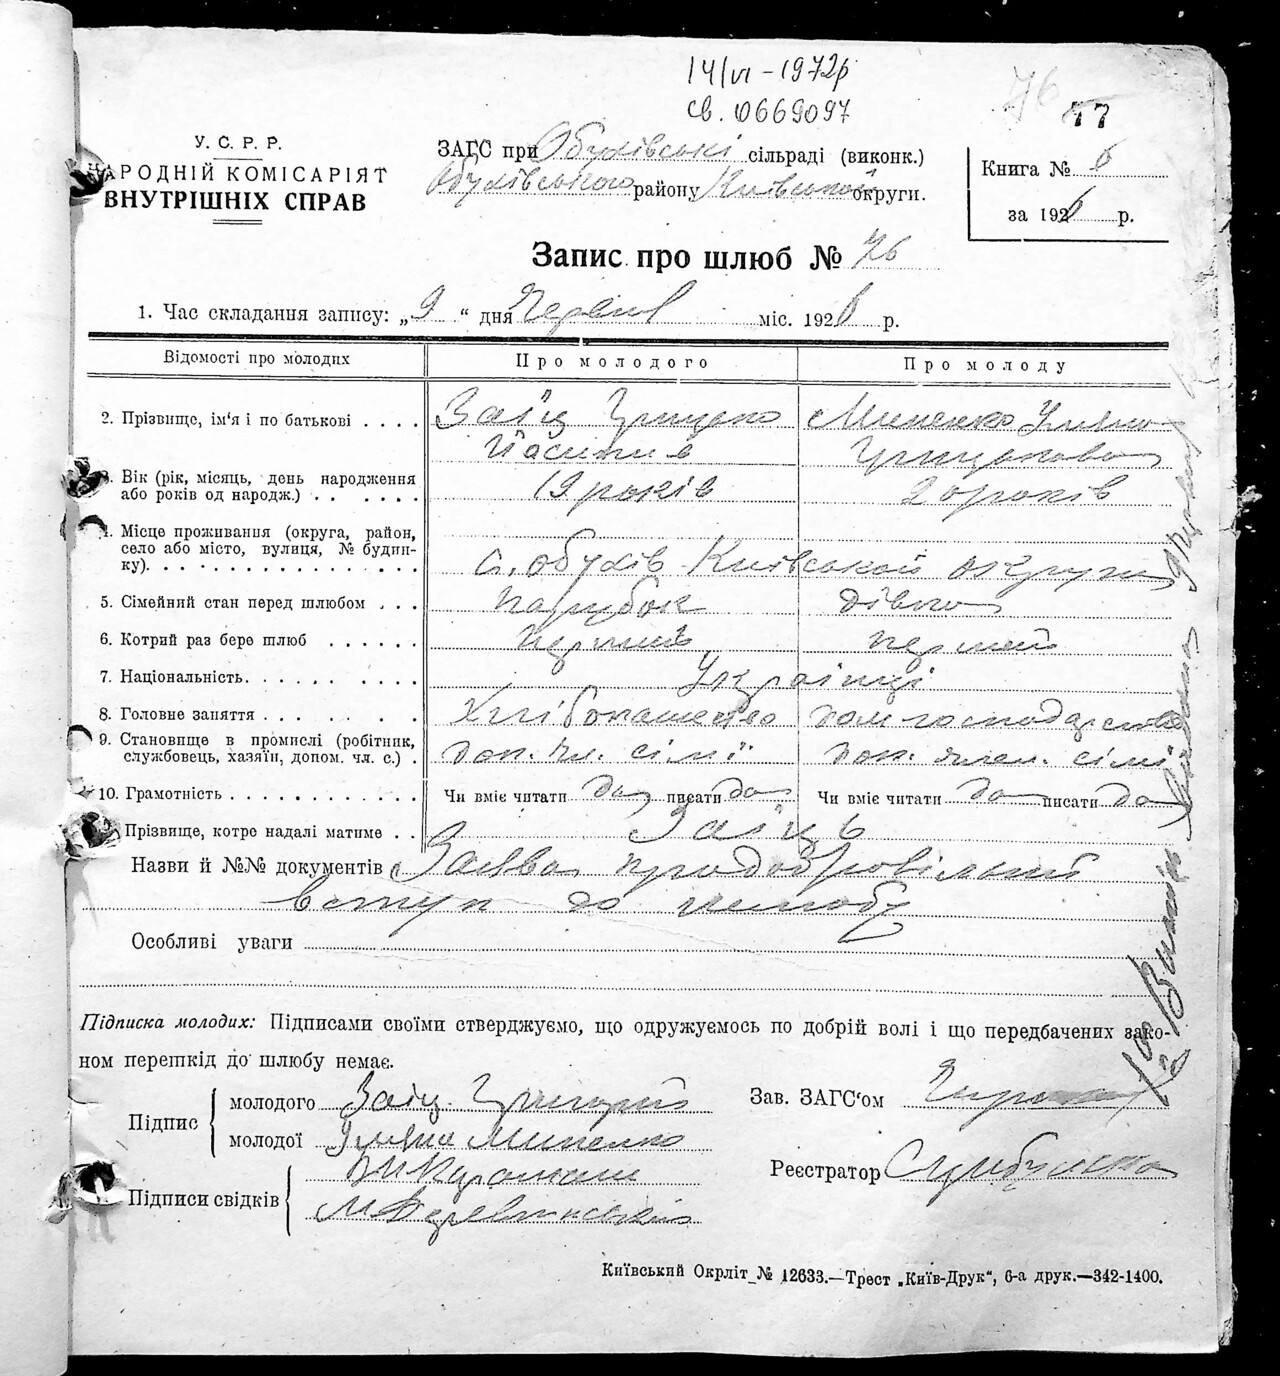 14/VI – 1972р
св. 0669097
76
77
У. С. Р. Р.
НАРОДНІЙ КОМІСАРІЯТ
ВНУТРІШНІХ СПРАВ
ЗАГС при Обухівські сільраді (виконк.)
Обухівського району Київської округи.
Книга № 6
за 1926 р.
Запис про шлюб № 76
1. Час складання запису: „ 9 “ дня Червня міс. 1926 р.
Відомості про молодих Про молодого Про молоду
2. Прізвище, ім'я і по батькові . . . . Заїц Грицько Миненко Уляна
Грицькова
3. Вік (рік, місяць, день народження 19 років 20 років
або років од народж.) . . . . . .
4. Місце проживання (округа, район,
село або місто, вулиця, № будин-
ку). . . . . . . . . . . . . . . . с. Обухів Київської округи
5. Сімейний стан перед шлюбом . . . парубок дівка
6. Котрий раз бере шлюб . . . . . . перший перший
7. Національність. . . . . . . . . . Українці
8. Головне заняття . . . . . . . . Хлібопашество дом господарство
9. Становище в промислі (робітник,
службовець, хазяїн, допом. чл. с.) . доп. чл. сімї доп. член. сімі
10. Грамотність . . . . . . . . . . . . Чи вміє читати да писати да Чи вміє читати да писати да
Прізвище, котре надалі матиме . . Заїць
Назви й №№ документів Заява про добровільний
вступ до шлюбу
Особливі уваги
Підписка молодих: Підписами своїми стверджуємо, що одружуємось по добрій волі і що передбачених зако-
ном перешкід до шлюбу немає.
Підпис
молодого Заїц Григорій
молодої Уляна Миненко
Зав. ЗАГС'ом
Підписи свідків
Реєстратор
Київський Окрліт № 12633.—Трест „Київ-Друк“, 6-а друк.—342-1400.